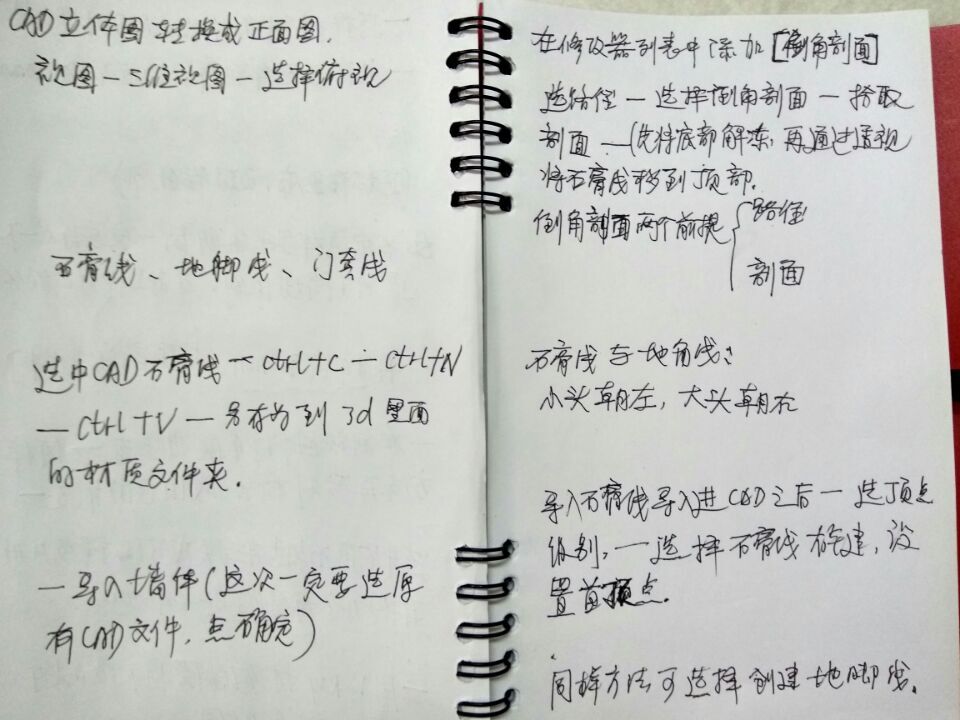 CAD立体图转换成正面图.
视图—三维视图—选择俯视
石膏线、地脚线、门套线
选中CAD石膏线—ctrl+C—ctrl+N
—ctrl+V—另存为到3d里面
的材质文件夹.
—导入墙体(这次一定要选原
有CAD文件,点确定)
在修改器列表中添加[倒角剖面]
选路径—选择倒角剖面—拾取
剖面—(先将底部解冻,再通过透视
将石膏线移到顶部.
倒角剖面两个前提{路径
剖面
石膏线与地角线:
小头朝左,大头朝右
导入石膏线导入进CAD之后—选顶点
级别,—选择石膏线构建,设
置首顶点.
同样方法可选择创建地脚线.